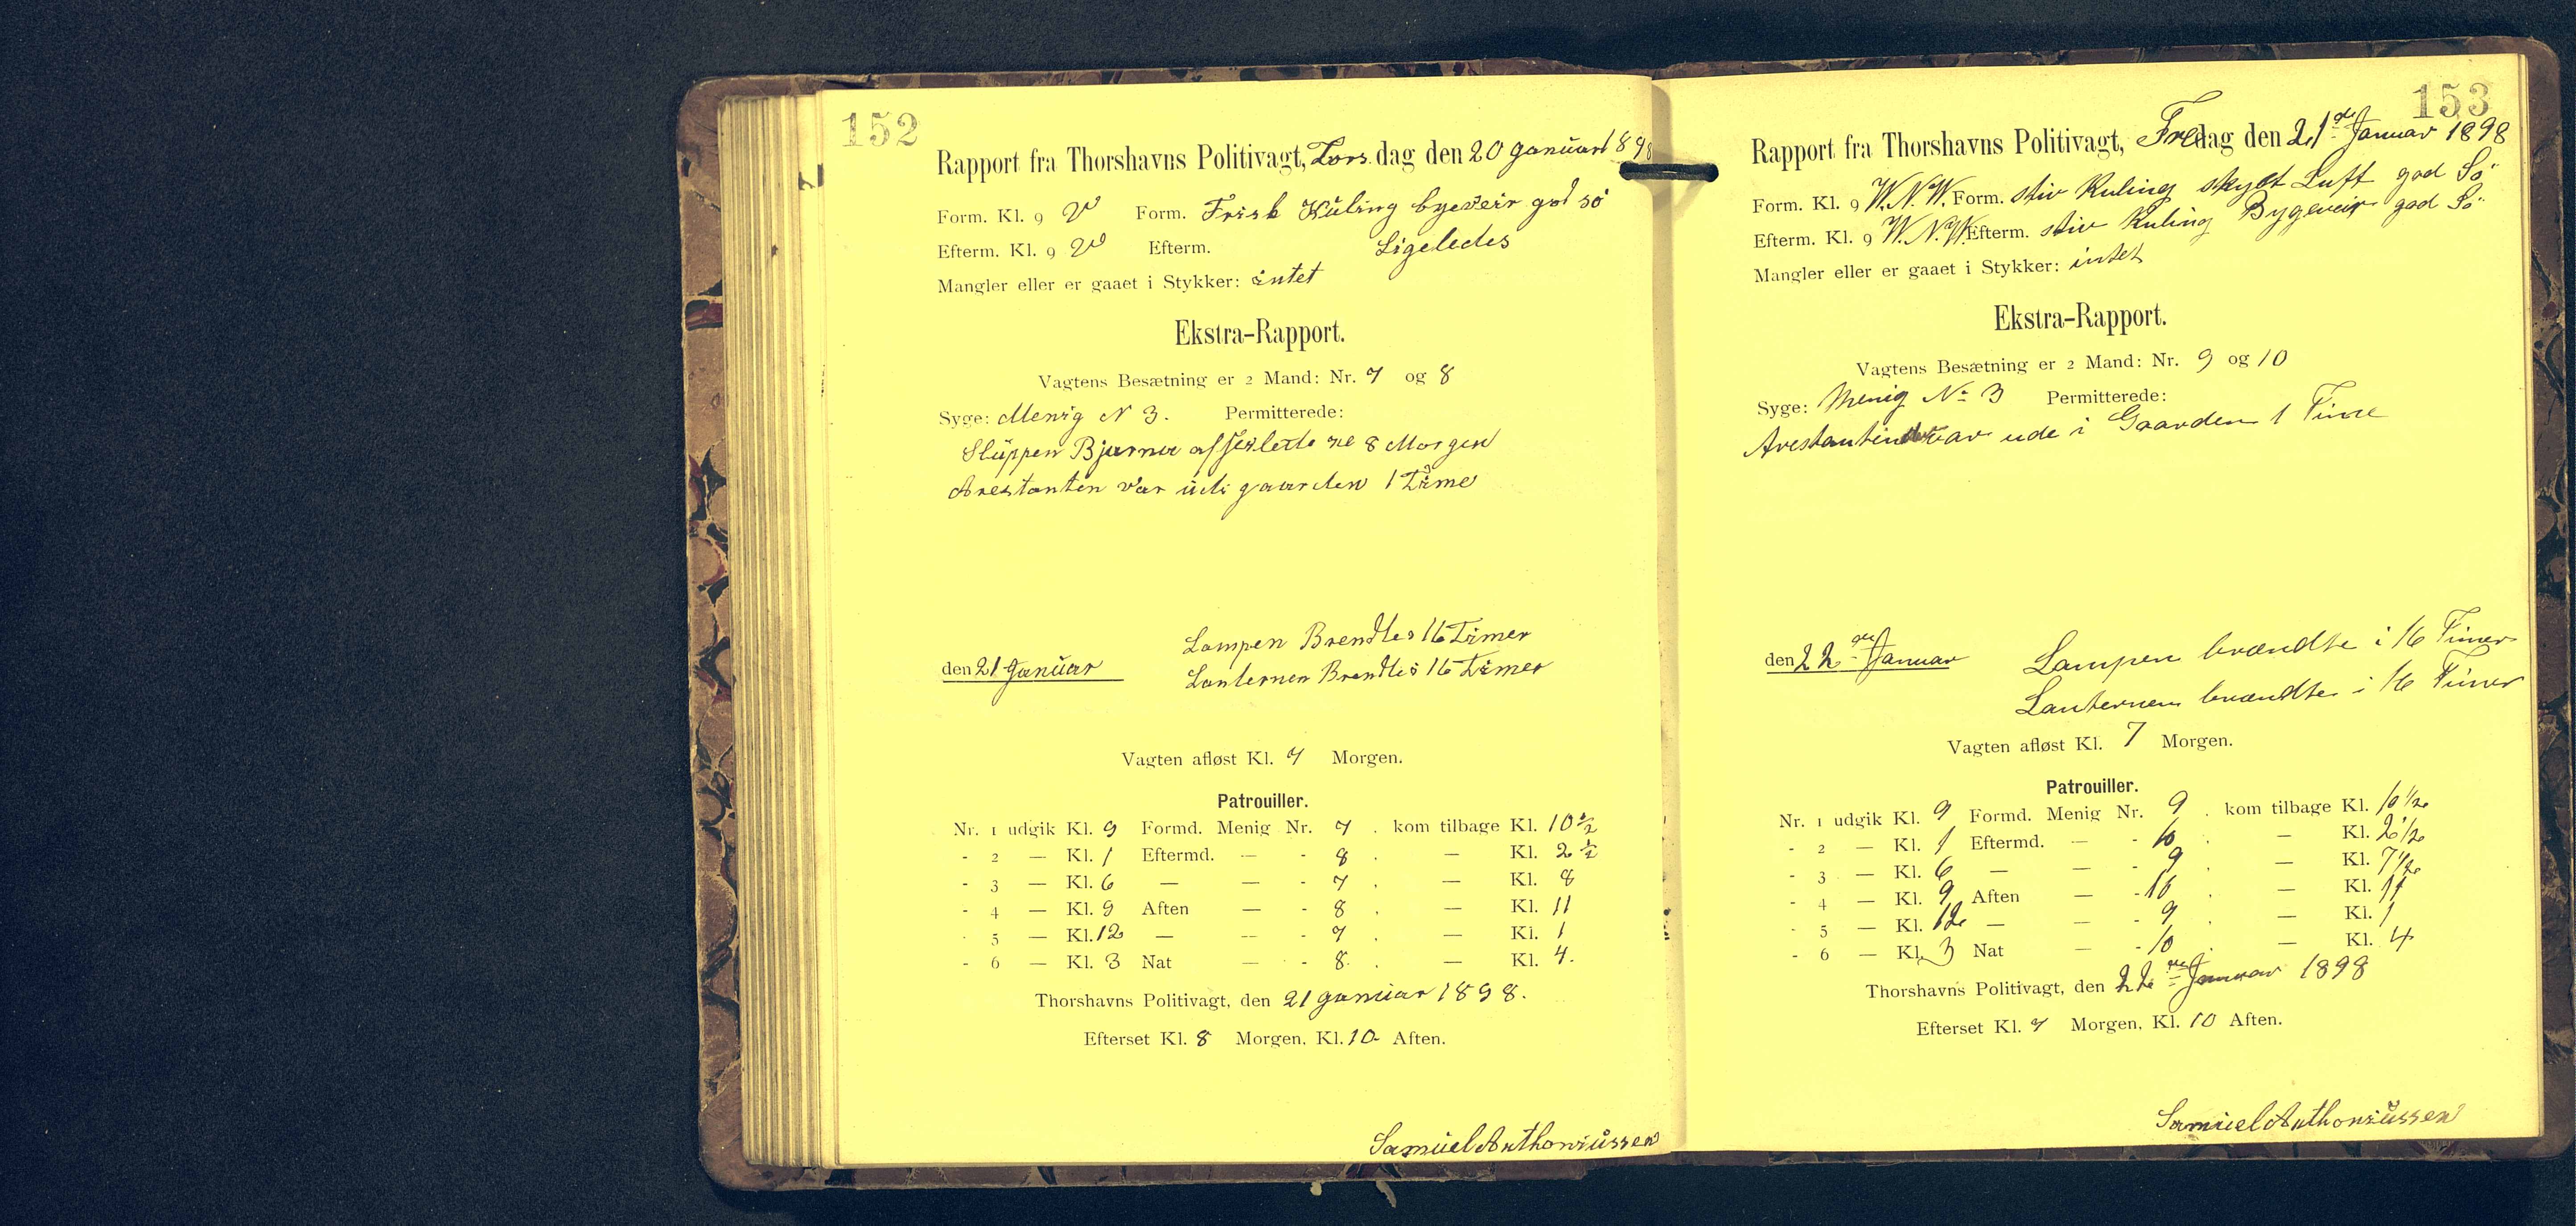 152
Rapport fra Thorshavns Politivagt, Tors dag den 20 Januar 1898
Form. Kl. 9 V Form. Frisk Kùling byeveir god sö
Efterm. Kl. 9 V Efterm. Ligeledes
Mangler eller er gaaet i Stykker: intet
Ekstra-Rapport.
Vagtens Besætning er 2 Mand: Nr. 7 og 8
Syge: Menig N 3. Permitterede:
Slüppen Bjarma afseilede kl 8 Morgen
Arestanten var üdi gaarden 1 Time
den 21 Januar
Lampen Brendtes 16 Timer
Lanternen Brendtes 16 Timer
Vagten afløst Kl. 7 Morgen.
Patrouiller.
Nr. 1 udgik Kl. 9 Formd. Menig Nr. 7 . kom tilbage Kl. 10 1/2
- 2 — Kl. 1 Eftermd. — - 8 . — Kl. 2 1/2
- 3 — Kl. 6 — — - 7 . — Kl. 8
- 4 — Kl. 9 Aften — - 8 . — Kl. 11
- 5 — Kl. 12 — — - 7 . — Kl. 1
- 6 — Kl. 3 Nat — - 8 . — Kl. 4.
Thorshavns Politivagt, den 21 januar 1898.
Efterset Kl. 8 Morgen, Kl. 10 Aften.
Samüel Anthoniüssen
153
Rapport fra Thorshavns Politivagt, Fredag den 21de Januar 1898
Form. Kl. 9 W.N.W. Form. stiv Kuling skyet Luft god Sö
Efterm. Kl. 9 W.N.W Efterm. stiv Kuling Bygeveir god Sö
Mangler eller er gaaet i Stykker: intet
Ekstra-Rapport.
Vagtens Besætning er 2 Mand: Nr. 9 og 10
Syge: Menig No 3 Permitterede:
var ude i Gaarden 1 Time
den 22de Januar
Lampen brændte i 16 Timer
Lanternen brændte i 16 Timer
Vagten afløst Kl. 7 Morgen.
Patrouiller.
Nr. 1 udgik Kl. 9 Formd. Menig Nr. 9 . kom tilbage Kl. 10 1/2
- 2 — Kl. 1 Eftermd. — - 10 . — Kl. 2 1/2
- 3 — Kl. 6 — — - 9 . — Kl. 7 1/2
- 4 — Kl. 9 Aften — - 10 . — Kl. 11
- 5 — Kl. 12 — — - 9 . — Kl. 1
- 6 — Kl. 3 Nat — - 10 . — Kl. 4
Thorshavns Politivagt, den 22de Januar 1898
Efterset Kl. 7 Morgen, Kl. 10 Aften.
Samuel Anthoniüssen